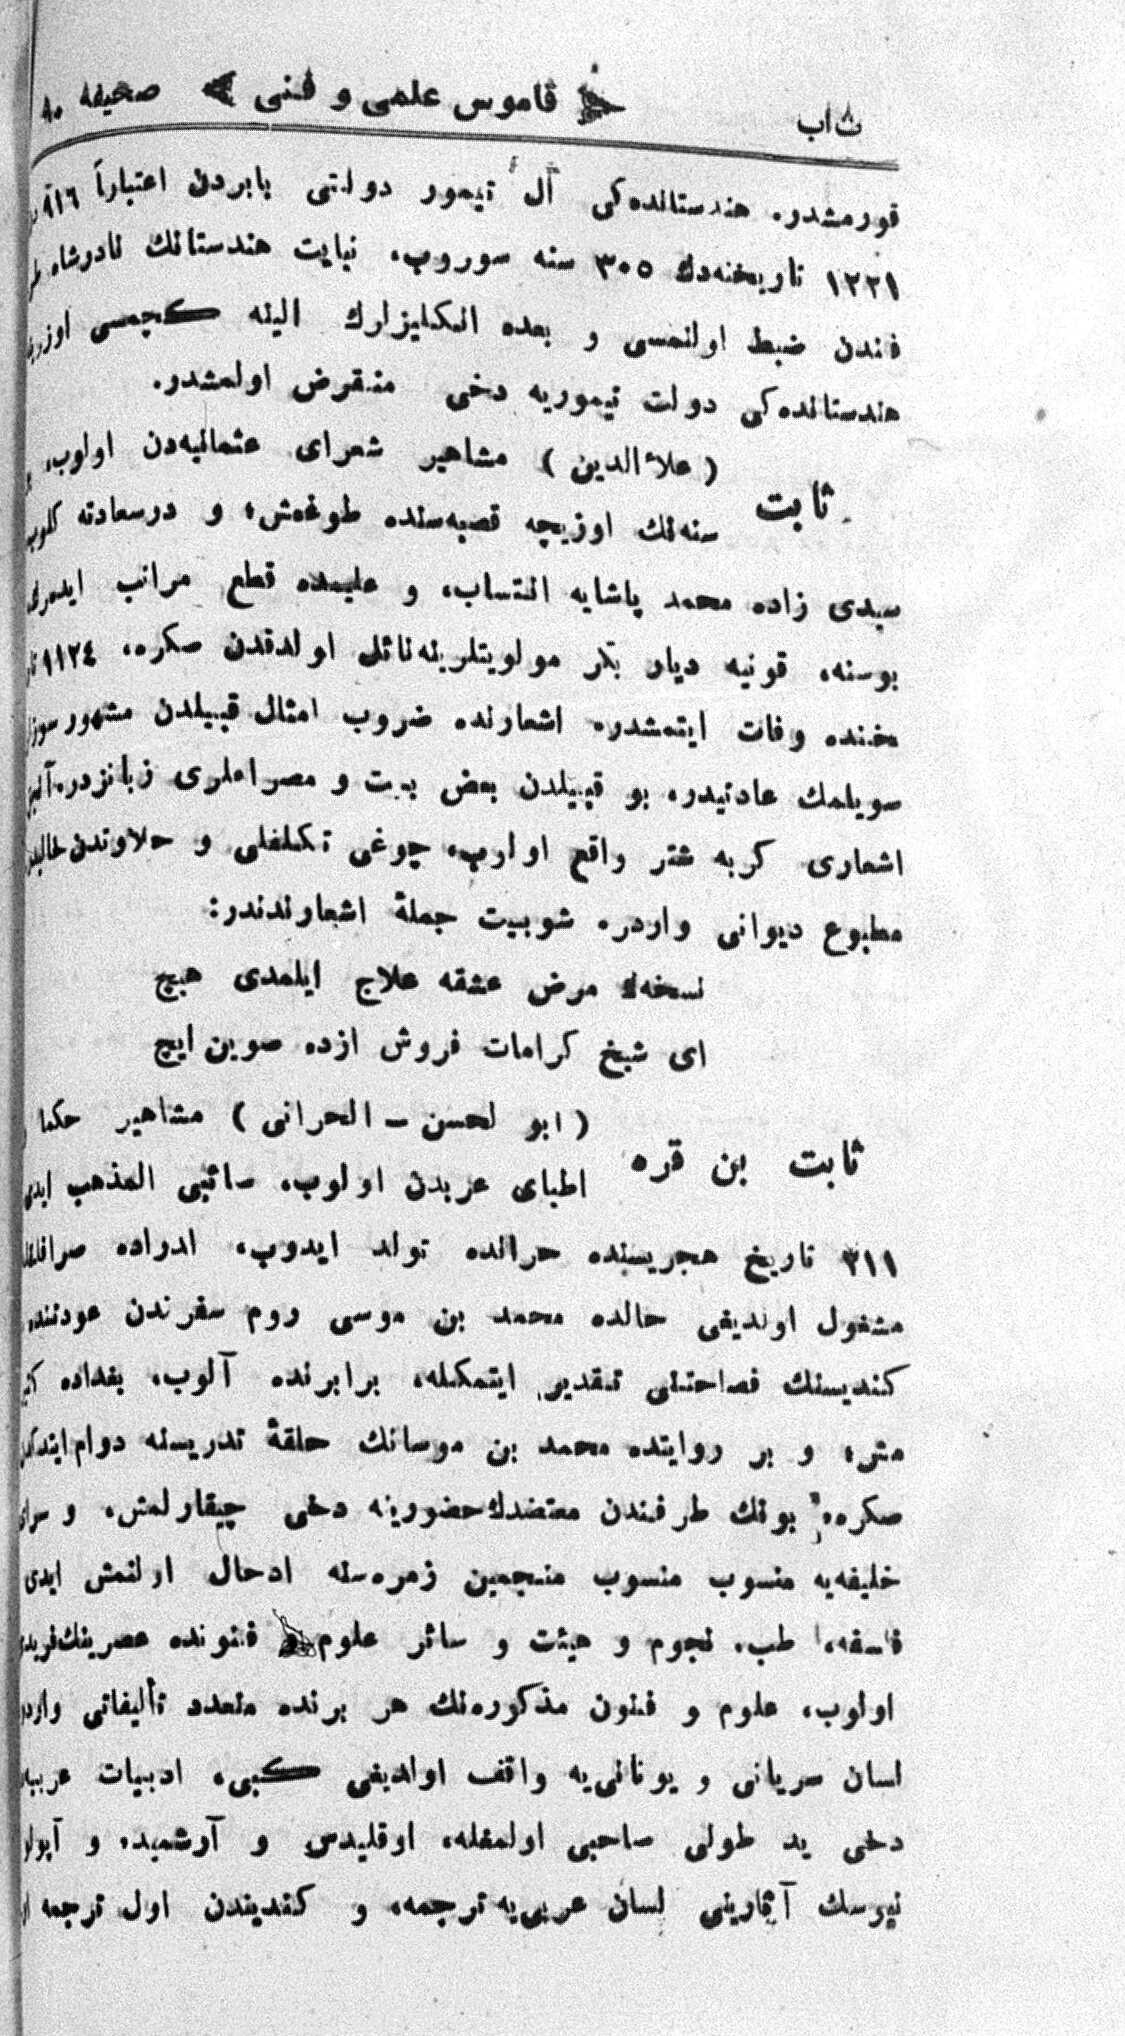 ثاب ﴿ قاموس علمی و فنی ﴾ صحیفه ٨٠
قورمشدر. هندستانده‌کی آل تیمور دولتی بابردن اعتباراً ٩١٦
١٢٢١ تاریخنه‌دك ٣٠٥ سنه سوروب، نهایت هندستانك نادرشاه طر
فندن ضبط اولنمسی و بعده انکلیزلرك الینه کچمسی اوزرینه
هندستانده‌کی دولت تیموریه دخی منقرض اولمشدر.
ثابت ( علاءالدین ) مشاهیر شعرای عثمانیه‌دن اولوب،
سنه‌نك اوزیچه قصبه‌سنده طوغمش، و درسعادته کلوب
سیدی زاده محمد پاشایه انتساب، و علیمده قطع مراتب ایدەرك
بوسنه، قونیه دیار بکر مولویتلرینه نائل اولدقدن صکره، ١١٢٤ تار
یخنده وفات ایتمشدر. اشعارنده ضروب امثال قبیلدن مشهور سوزلر
سویلمك عادتیدر، بو قبیلدن بعض بیت و مصراعلری زبانزدر.
اشعاری کربه شتر واقع اولوب، چوغی تکلفلی و حلاوتدن خالیدر
مطبوع دیوانی واردر. شوبیت جملهٔ اشعارندندر:
نسخه‌ك مرض عشقه علاج ایلمدی هیچ
ای شیخ کرامات فروش ازده صوین ایچ
ثابت بن قره ( ابو لحسن ــ الحرانی ) مشاهیر حکما
اطبای عربدن اولوب، صائبی المذهب ایدی
٢١١ تاریخ هجریسنده حرانده تولد ایدوب، ادراده صرافلقله
مشغول اولدیغی حالده محمد بن موسی روم سفرندن عودتنده
کندیسنك فصاحتنی تقدیر ایتمکله، برابرنده آلوب، بغداده کتیر
مش، و بر روایتده محمد بن موسانك حلقهٔ تدریسنه دوام ایتدکدن
صکره، بونك طرفندن معتضدك حضورینه دخی چیقارلمش، و سرای
خلیفه‌یه منسوب منسوب منجمین زمره‌سنه ادحال اولنمش ایدی
فلسفه، طب، نجوم و هیئت و سائر علوم و فنونده عصرینك فریدی
اولوب، علوم و فنون مذکوره‌نك هر برنده متعدد تألیفاتی واردر
لسان سریانی و یونانی‌یه واقف اولدیغی کبی، ادبیات عربیه‌ده
دخی ید طولی صاحبی اولمغله، اوقلیدس و آرشمید، و آپولو
نیوسك آثارینی لسان عربی‌یه ترجمه، و کندیندن اول ترجمه